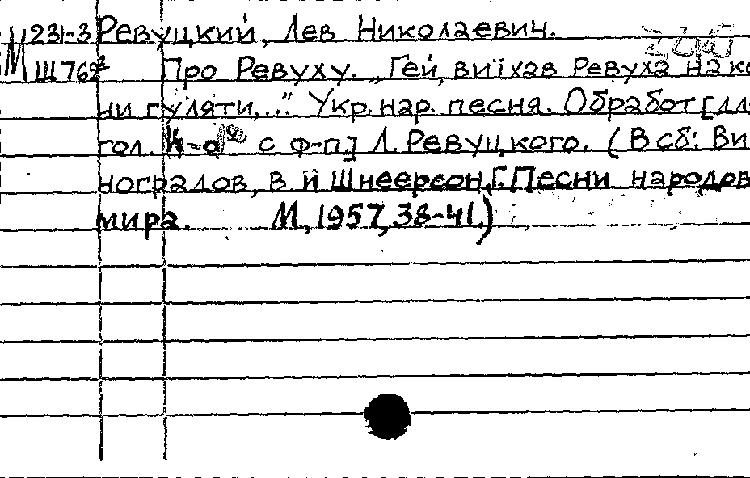 М 231-3 Ревуцкий, Лев Николаевич.
Ш 762 Про Ревуху. „Гей, виїхав Ревуха на ко
ни гуляти,..." Укр. нар. песня. Обработ[для
гол. с ф-п] Л. Ревуцкого. (В сб: Ви
ноградов, В и Шнеерсон,Г. Песни народов
мира. М., 1957, 38-41.)